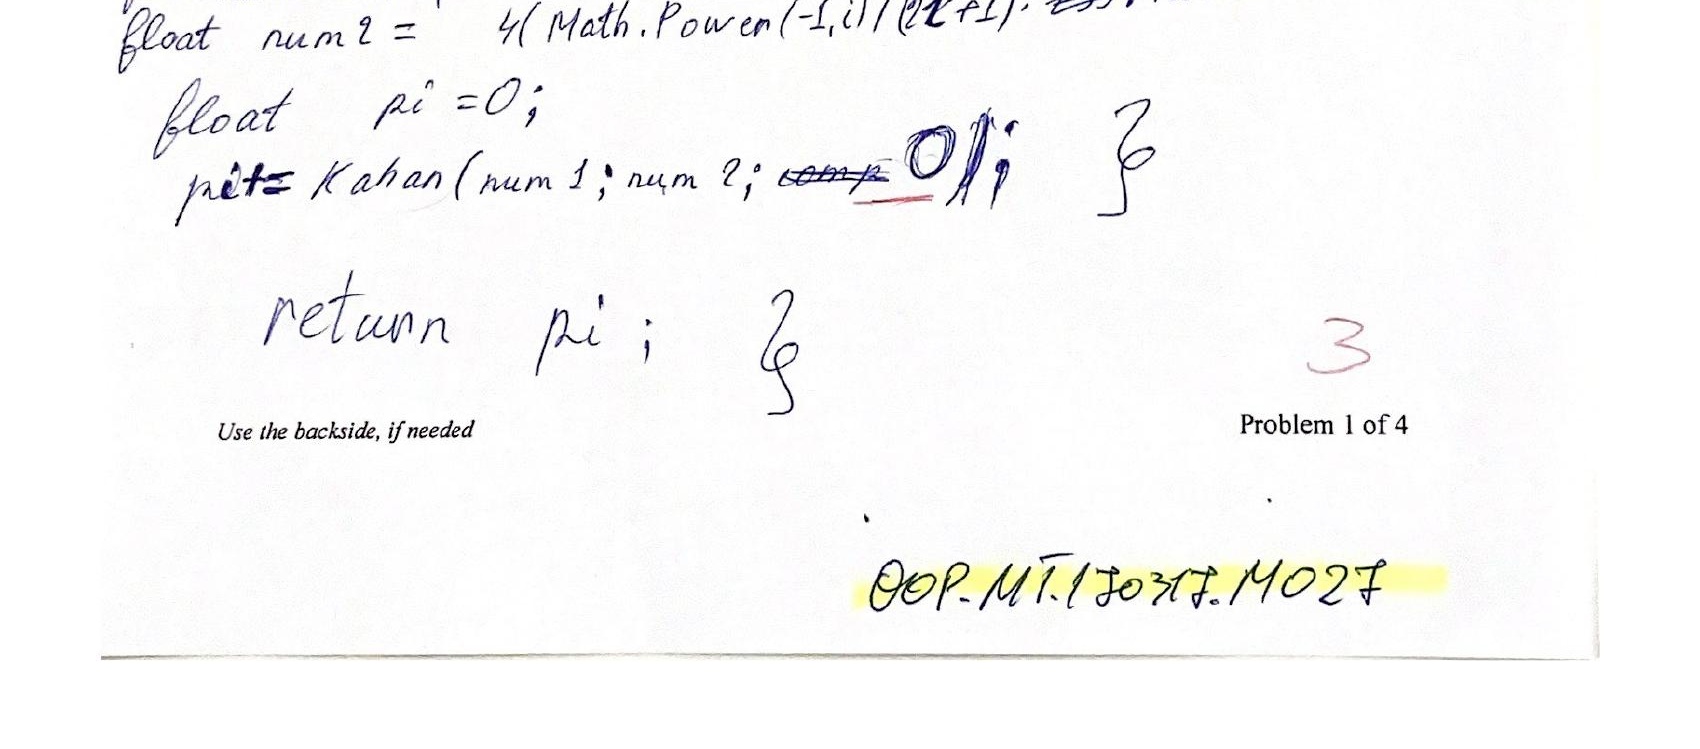 float num2 = 4(Math.Power(-1,i)/(2i+1)
float pi =0;
pi+= Kahan(num 1; num 2; comp 0);  }
return pi;  }
3
Use the backside, if needed
Problem 1 of 4
OOP.MT.170317.M027